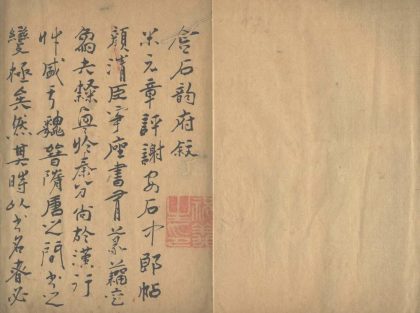 金石韵府敘
米元章評謝安石中郎帖
顏清臣爭座書有篆籀
夫隸興於秦分尚於漢行
艸盛于魏晉隋唐之間書之
變極矣然其時以書名者必